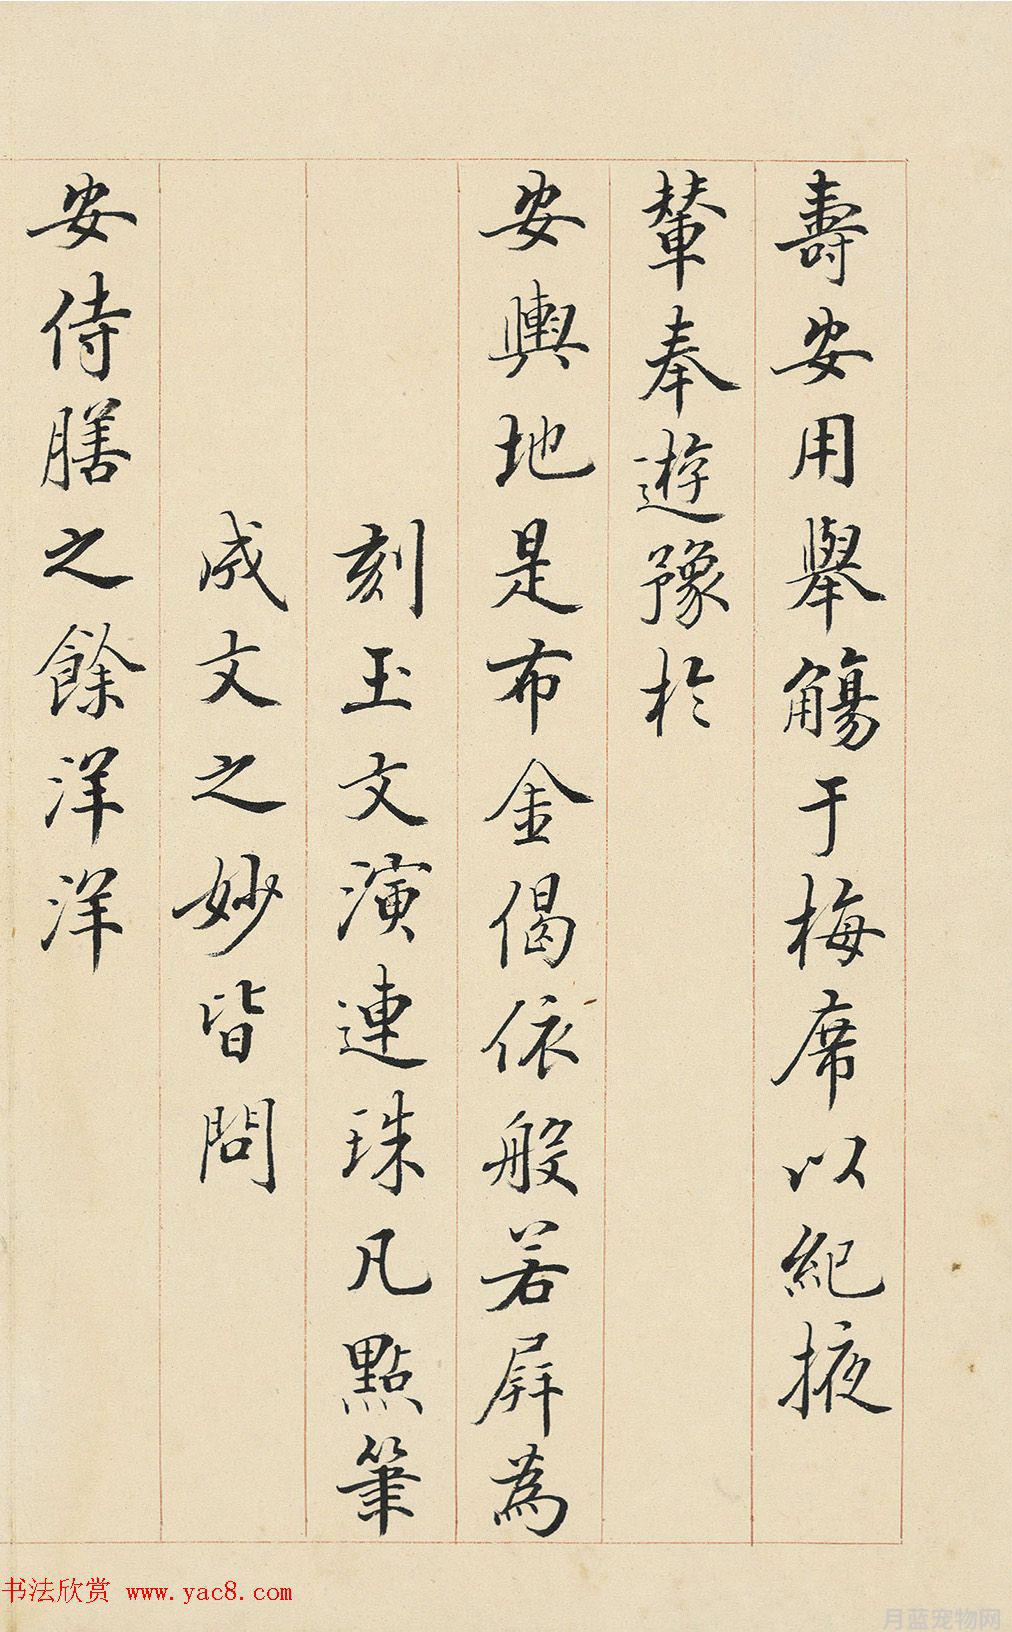 壽安用舉觴于梅席以紀掖
輦奉遊豫於
安輿地是布金偈依般若屏為
刻玉文演連珠凡點筆
成文之妙皆問
安侍膳之餘洋洋
书法欣赏 www.yac8.com
月蓝宠物网